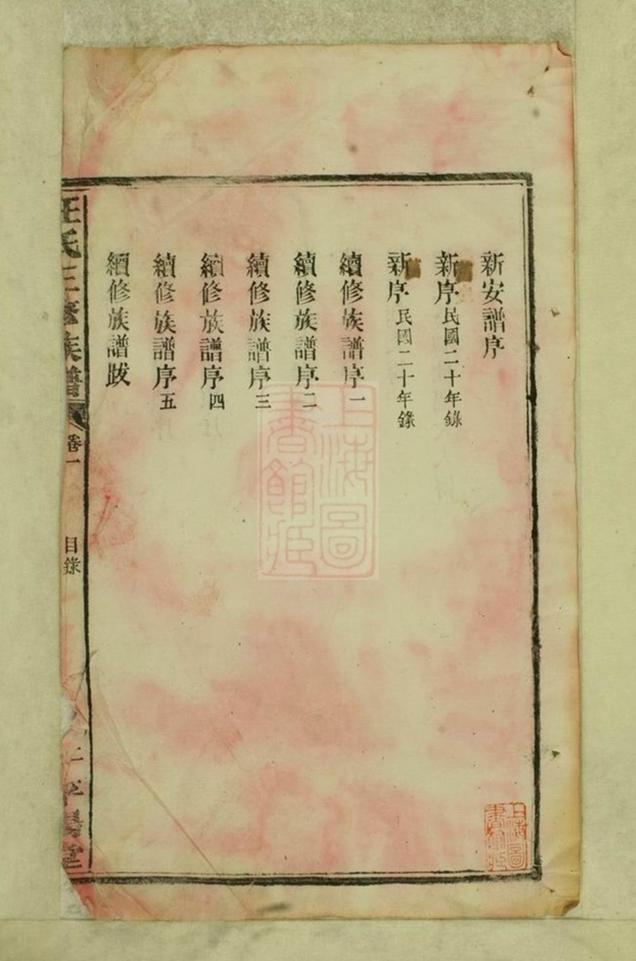 新安譜序
新序民國二十年錄
新序民國二十年錄
續修族譜序一
續修族譜序二
續修族譜序三
續修族譜序四
續修族譜序五
續修族譜跋
汪氏三修族譜
卷一
目錄
平陽堂
上海圖書館藏
上海圖書館藏